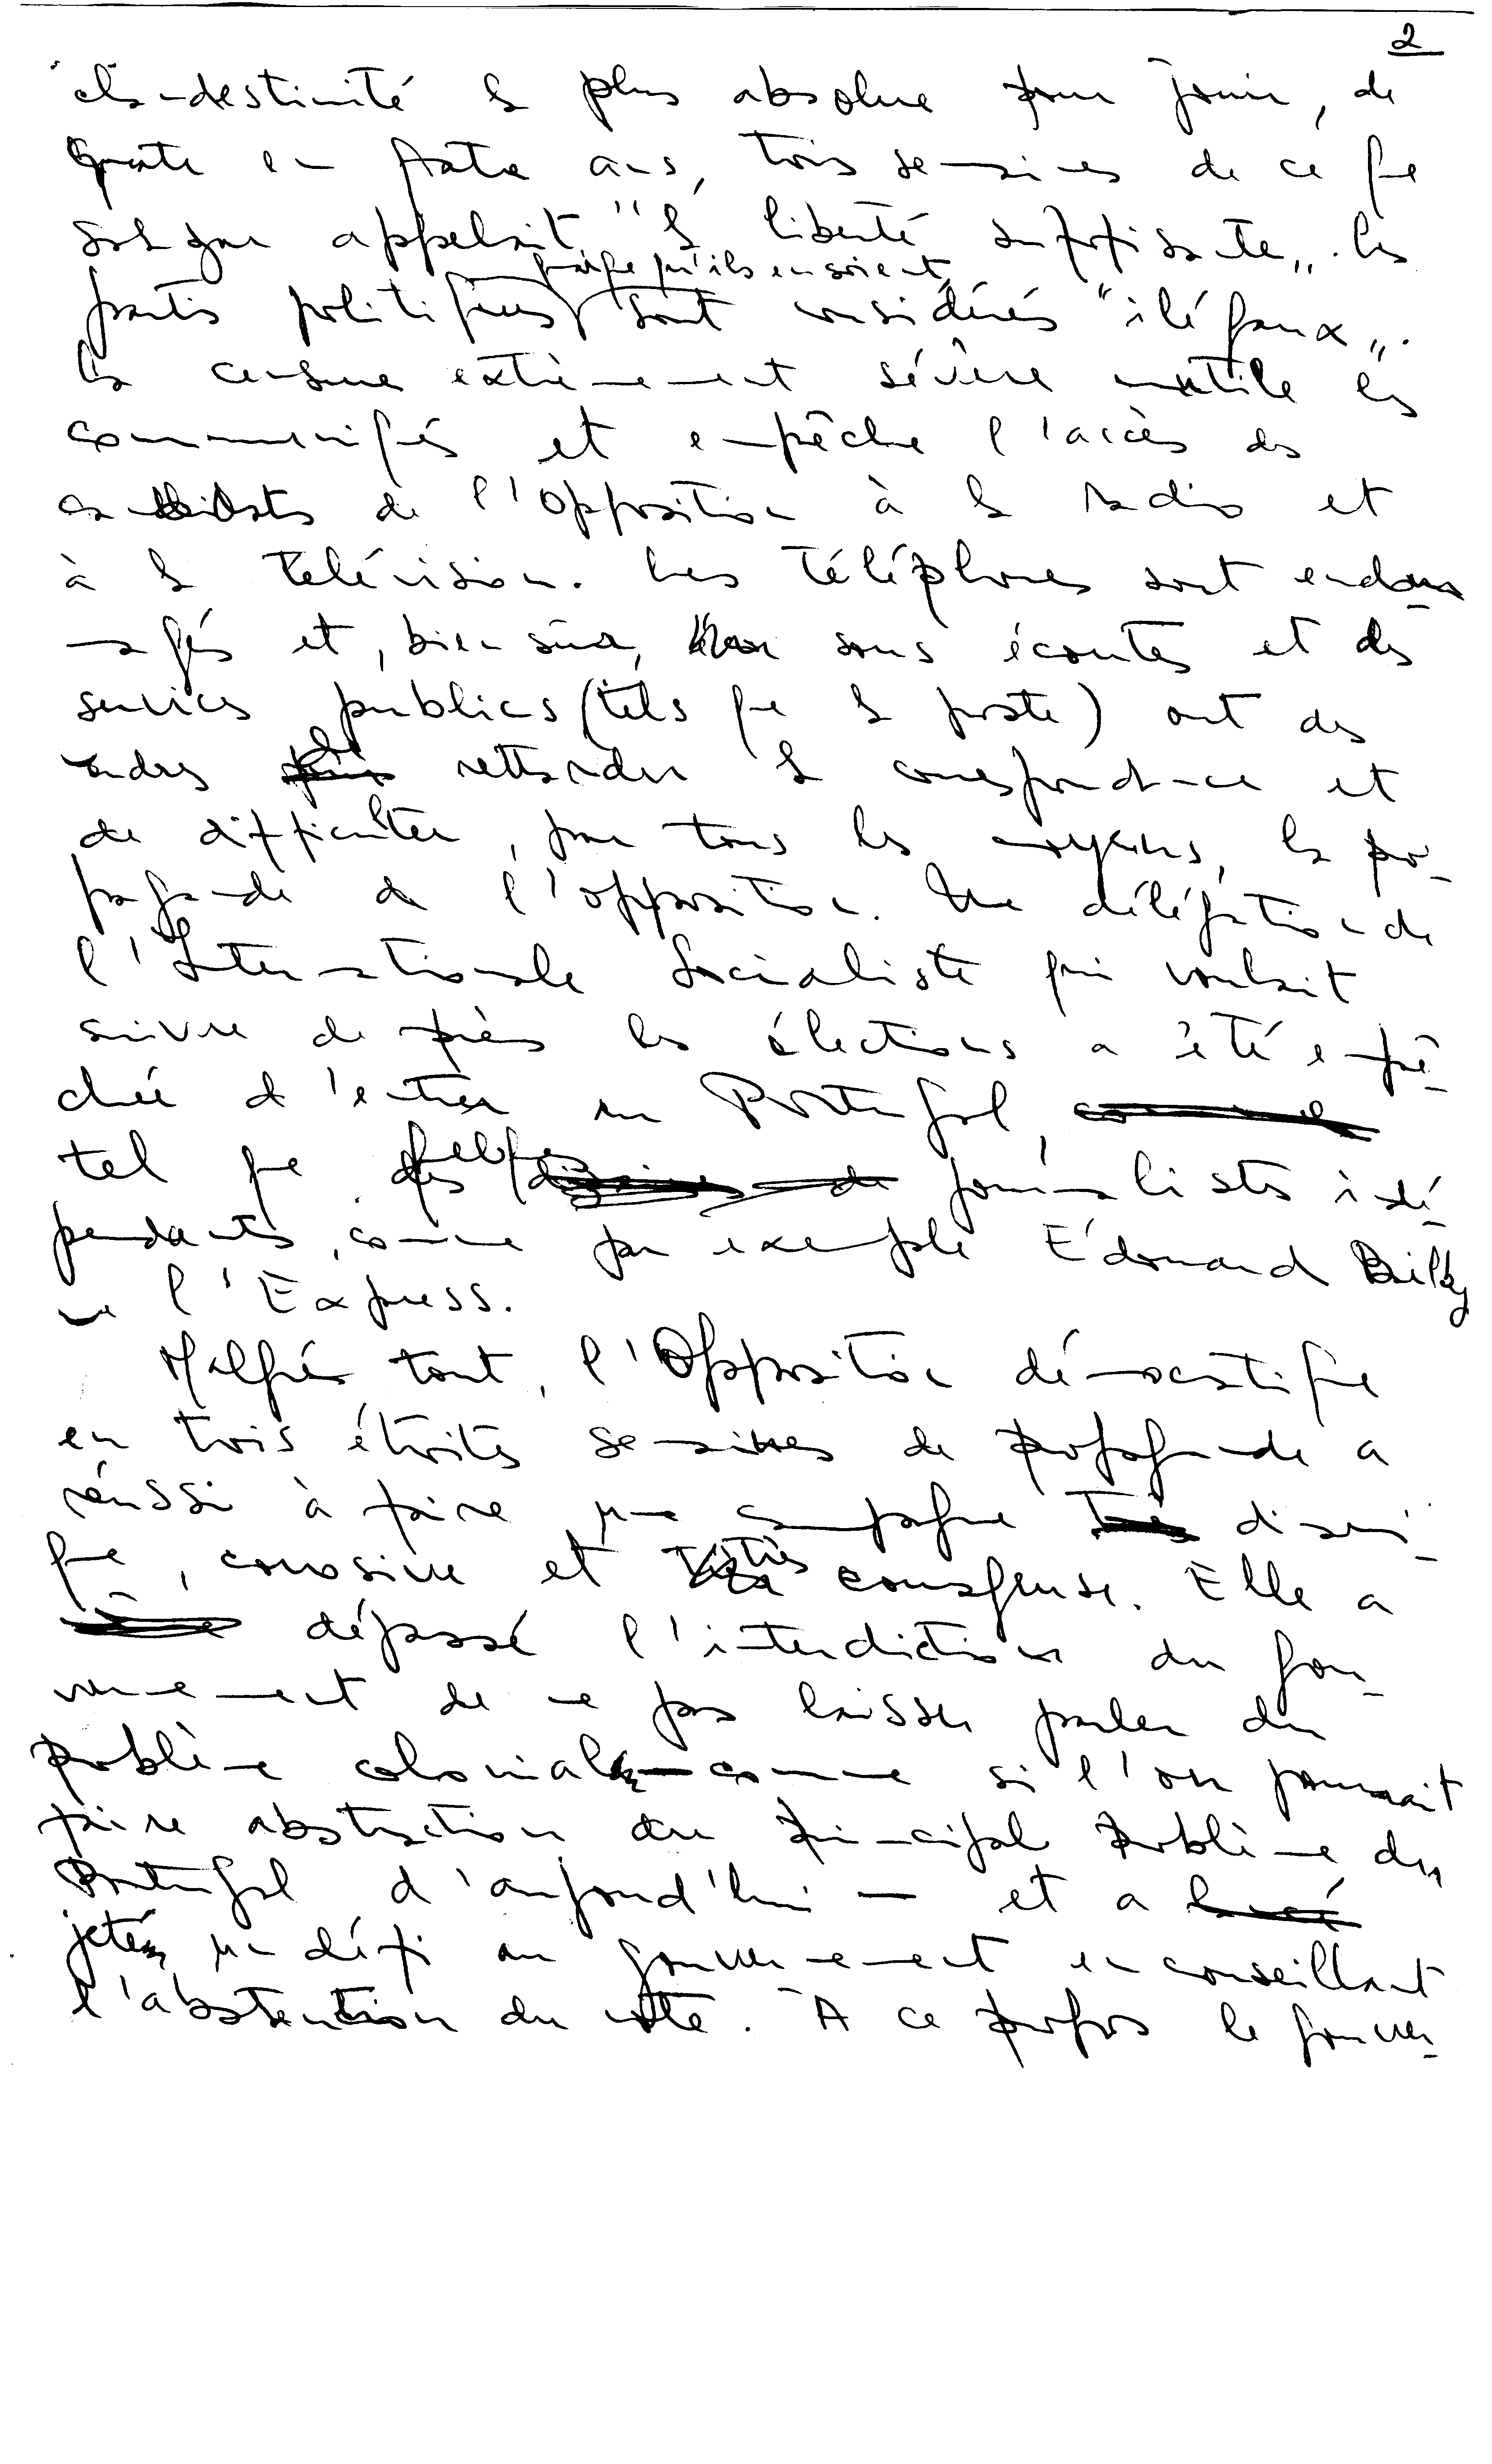 2
clandestinité la plus absolue pour jouir, de
quatre en quatre ans, trois semaines de ce que
Salazar appelait "la liberté suffisante". Les
quoiqu'ils en soient
partis politiques sont considérés "ilégaux".
La censure extrèmement sévère mutile les
communiqués et empêche l'accès des
candidats de l'Opposition à la radio et
à la télévision. Les téléphones sont endom
magés et, bien sûr, sous écoutes et des
services publics (tels que la poste) ont des
ordres de rettarder la correspondance et
de difficulter, par tous les moyens, la pro-
pagande de l'opposition. Une délégation de
l'Internationale Socialiste qui voulait
suivre de près les élections a été empê-
chée d'entrer au Portugal,
tel que quelques journalistes indé-
pendants, comme par exemple Édouard Bailby
de l'Express.
Malgrés tout, l'Opposition démocratique
en trois étroites semaines de propagande a
réussi à faire une campagne
que, corrosive et très courageuse. Elle a
dépassé l'interdiction du gou-
vernement de ne pas laisser parler du
problème colonial — comme si l'on pourrait
faire abstraction du principal problème du
Portugal d'aujourd'hui — et a
jeté un défi au gouvernement en conseillant
l'abstention du vote. A ce propos le gouver-